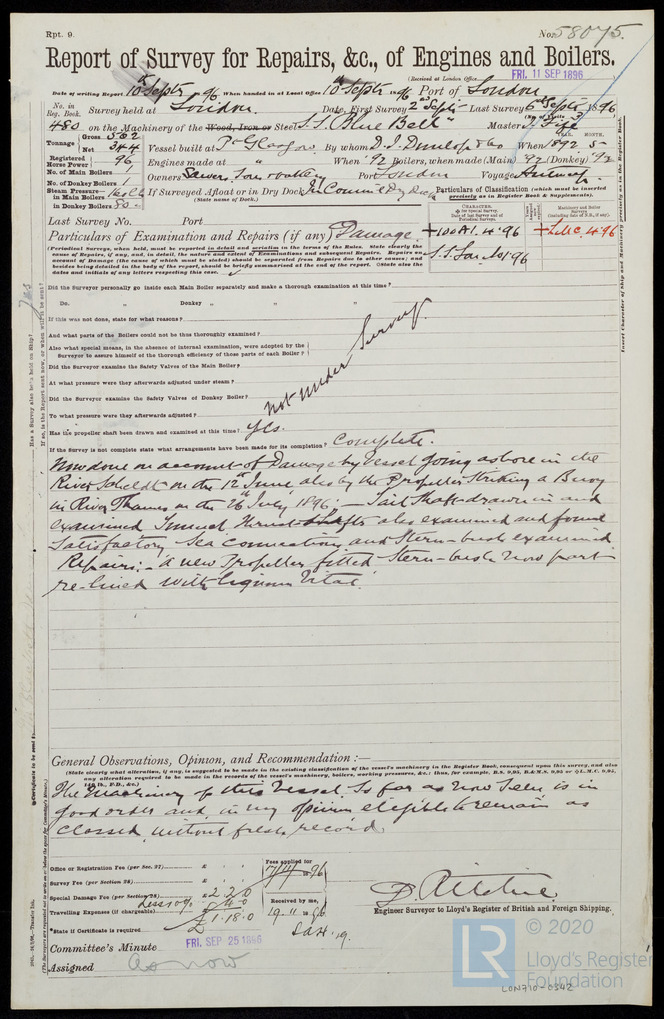 Rpt. 9.
No. 58075.
Report of Survey for Repairs, &c., of Engines and Boilers.
(Received at London Office
FRI. 11 SEP 1896
Date of writing Report 10th Septr 96 When handed in at Local Office 10th Septr 1896 Port of London
No. in Reg. Book. Survey held at London Date, First Survey 2nd Septr Last Survey 6th Septr 1896
480 on the Machinery of the Wood, Iron or Steel S.S. "Blue Bell" Master J. Fife
Tonnage Gross 502 Net 344 Vessel built at Pt Glasgow By whom D. J. Dunlop & Co When 1892 5
YEAR. MONTH.
Registered Horse Power 96 Engines made at " When '92 Boilers, when made (Main) '92 (Donkey) '92
No. of Main Boilers 1 Owners Port London Voyage Antwerp
No. of Donkey Boilers 1
Steam Pressure in Main Boilers 160 lb
in Donkey Boilers 80
If Surveyed Afloat or in Dry Dock In Dry Dock
(State name of Dock.)
Particulars of Classification (which must be inserted precisely as in Register Book & Supplements).
Last Survey No. Port
CHARACTER.
Machinery and Boiler Surveys
Particulars of Examination and Repairs (if any) Damage
+100A1. 4.96
+LMC. 4.96
S.S. Lon No1 96
(Periodical Surveys, when held, must be reported in detail and seriatim in the terms of the Rules. State clearly the cause of Repairs, if any, and, in detail, the nature and extent of Examinations and subsequent Repairs. Repairs on account of Damage (the cause of which must be stated) should be separated from Repairs due to other causes; and besides being detailed in the body of the report, should be briefly summarised at the end of the report. State also the dates and initials of any letters respecting this case.
Did the Surveyor personally go inside each Main Boiler separately and make a thorough examination at this time?
Do. " Donkey " " "
If this was not done, state for what reasons?
And what parts of the Boilers could not be thus thoroughly examined?
Also what special means, in the absence of internal examination, were adopted by the Surveyor to assure himself of the thorough efficiency of those parts of each Boiler?
Did the Surveyor examine the Safety Valves of the Main Boiler?
At what pressure were they afterwards adjusted under steam?
Did the Surveyor examine the Safety Valves of Donkey Boiler?
To what pressure were they afterwards adjusted?
not under Survey
Has the propeller shaft been drawn and examined at this time? yes.
If the Survey is not complete state what arrangements have been made for its completion? Complete.
Now done on account of Damage by Vessel going ashore in the
River Scheldt on the 12th June also by the Propeller striking a Buoy
in River Thames on the 26th July 1896, — Tail Shaft drawn in and
examined Tunnel Thrust shafts also examined and found
satisfactory Sea connections and Stern-bush examined
Repairs:- a new Propeller fitted Stern-bush now part
re-lined with Lignum Vitae.
General Observations, Opinion, and Recommendation:—
(State clearly what alteration, if any, is suggested to be made in the existing classification of the vessel's machinery in the Register Book, consequent upon this survey, and also any alteration required to be made in the records of the vessel's machinery, boilers, working pressures, &c.: thus, for example, B.S. 9,95, B.&M.S. 9,95 or +L.M.C. 9,95, 140 lb., F.D., &c.)
The Machinery of this Vessel So far as now seen is in
good order and, in my opinion eligible to remain as
Classed, without fresh record.
Office or Registration Fee (per Sec. 27) £
Survey Fee (per Section 28) £
Special Damage Fee (per Section 28) £ 2 2 0
Travelling Expenses (if chargeable) £
£1.18.0
Fees applied for
Received by me,
*State if Certificate is required
Engineer Surveyor to Lloyd's Register of British and Foreign Shipping.
Committee's Minute FRI. SEP 25 1896
Assigned as now
LON710-0342
LR
© 2020
Lloyd's Register
Foundation